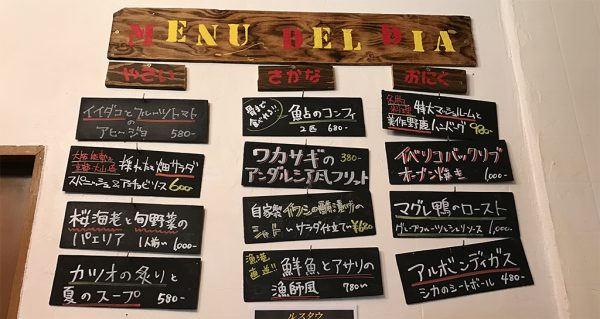 MENU DEL DIA
やさい
イイダコとフルーツトマト
のアヒージョ 580-
採れたて畑サラダ
スパニッシュ&アンチョビソース 600-
桜海老と旬野菜の
パエリア 1人前 1,000-
カツオの炙りと
夏のスープ 580-
さかな
骨まで
食べれる!!
鮎のコンフィ
2匹 680-
ワカサギの 380-
アンダルシア風フリット
自家製 イワシの酢漬けの
サラダ仕立て ¥680
漁港
直送!!
鮮魚とアサリの
漁師風 780-
ルスタウ
おにく
特大マッシュルームと
美作野鹿ハンバーグ 980-
イベリコバックリブ
オーブン焼き 1,000-
マグレ鴨のロースト
グレープフルーツとレッドソース 1,000-
アルボンディガス
シカのミートボール 480-